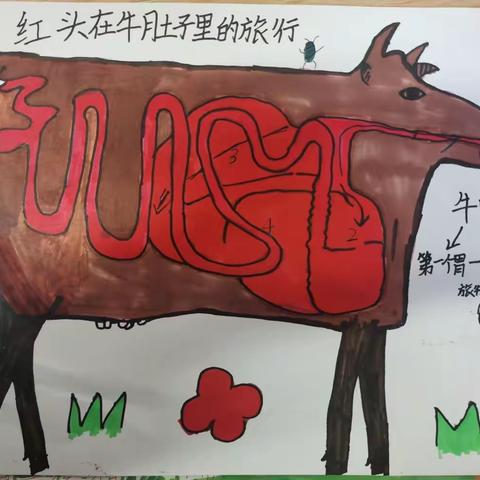 红 头在牛肚子里的旅行
3
4
2
牛
第一
旅